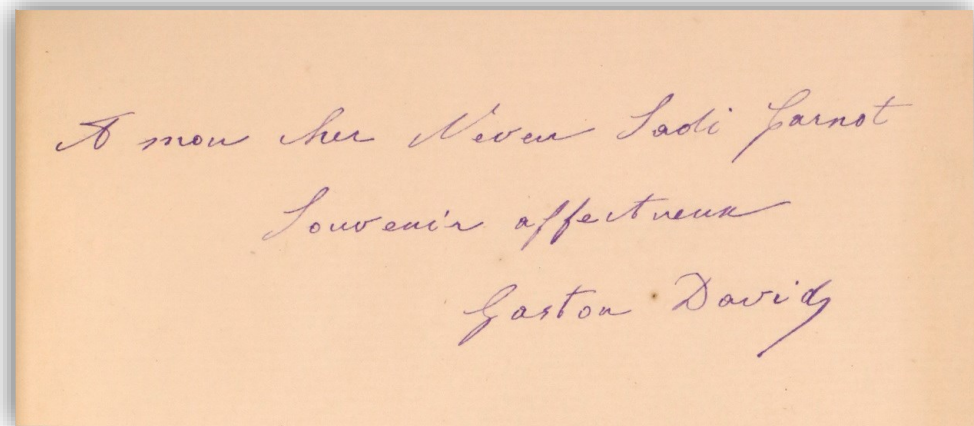 A mon cher Neveu Sadi Carnot
Souvenir affectueux
Gaston David